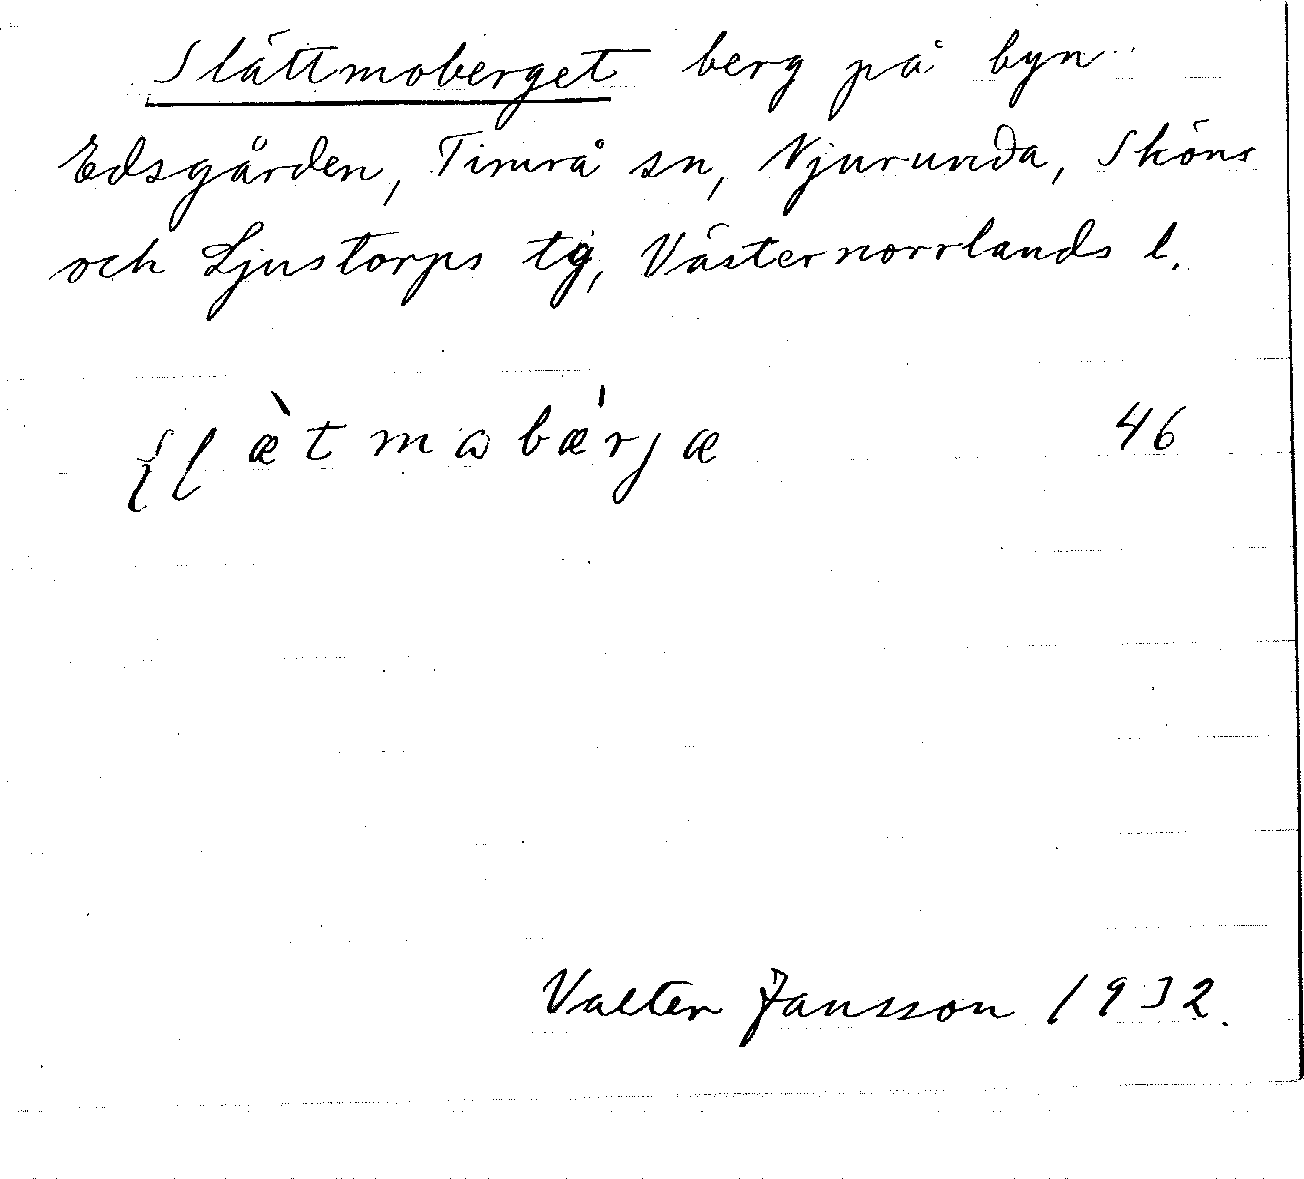 Slättmoberget berg på byn
Edsgården, Timrå sn, Njurunda, Sköns
och Ljustorps tg, Västernorrlands l.
ʂɭæ̀tmɷbæ̍rjæ 46
Valter Jansson 1932.